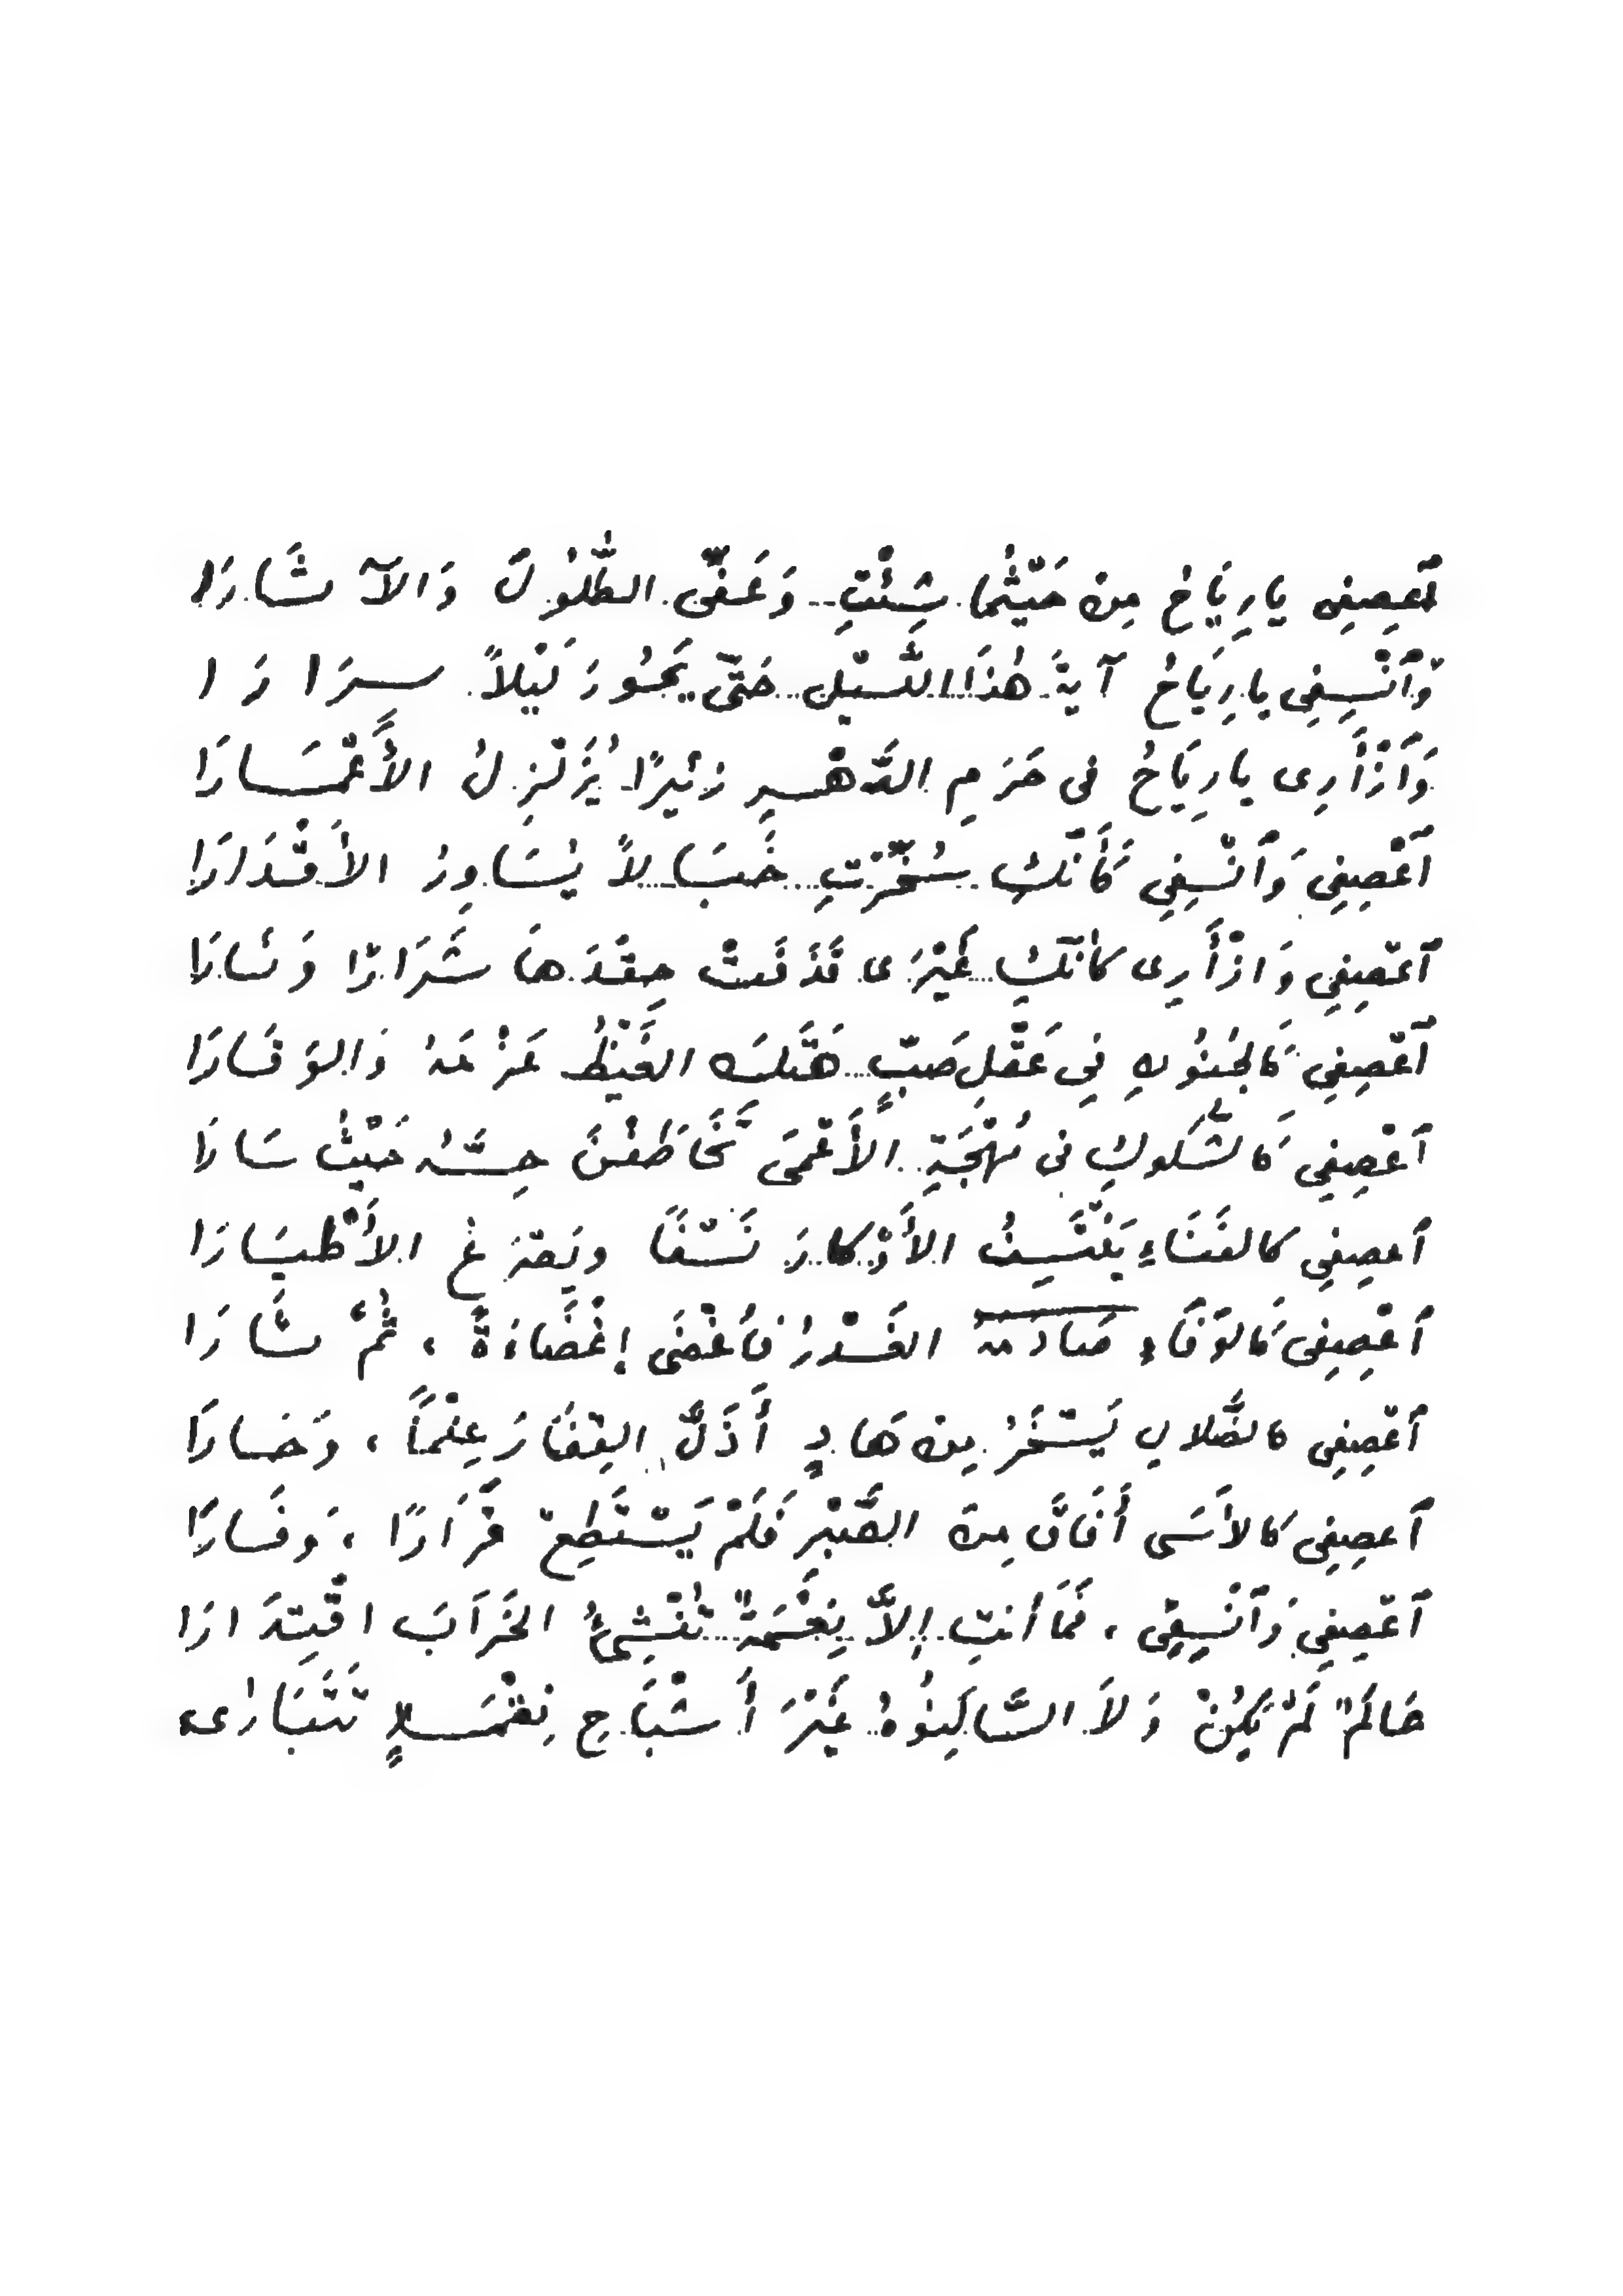 اَعْصِفِى يَا رِيَاحُ مِنْ حَيْثُمَا شِئْتِ وَعَفِّى الطُّلُولَ وَالآثَارَا
وَاَنْسِفِى يا رِيَاحُ آيَةَ هٰذَا اللَّيْلِ حَتَّى يَحُورَ لَيْلاً سِرَارَا
وَاَزْأَرِى يا رِيَاحُ فى حَرَمِ الدَّهْرِ زَئِيرًا يُزَلْزِلُ الأَعْمَارَا
اَعْصِفِى وَاَنْسِفِى كَأَنَّكِ سُخِّرْتِ خَبَالاً يُسَاوِرُ الأَقْدَارَا
اَعْصِفِى وَازْأَرِى كأنَّكِ غَيْرَى قَذَفَتْ حِقْدَهَا شَرَارًا وَنَارَا
اَعْصِفِى كَالجُنُونِ فِى عَقْلِ صَبٍّ هَتَكَ الغَيْظُ عَزْمَهُ وَالوَقَارَا
اَعْصِفِى كَالشُّكوكِ فى مُهْجَةِ الأَعْمَى تَخَاطَفْنَ حِسَّهُ حَيْثُ سَارَا
اَعصِفِى كالفَنَاءِ يَنْتَسِفُ الأَوْكَارَ نَسْفًا ويَصْرَعُ الأَطْيَارَا
اَعْصِفِى كَالوَفَاءِ صَادَمَهُ الغَدْرُ فَأَغْضَى إغْضَاءَةً ، ثُمَّ ثَارَا
اَعْصِفِى كالضَّلالِ يَسْخَرُ مِنْ هَادٍ أَذَلَّ القِفَارَ عِلْمًا ، وَحَارَا
اَعصِفِى كَالأَسَى أَفَاقَ مِنَ الصَّبْرِ فَلَمْ يَسْتَطِعْ قَرَارًا ، وَفَارَا
اَعْصِفِى وَاَنْسِفِى ، فَمَا أنتِ إلاَّ نِعْمَةٌ تُنْشِئُ الخَرَابَ اقْتِدَارَا
عَالَمٌ لَمْ يَكُنْ وَلاَ السَّاكِنُوهُ غَيْرَ أَشْبَاحِ نِقْمَةٍ تَتَبَارَى